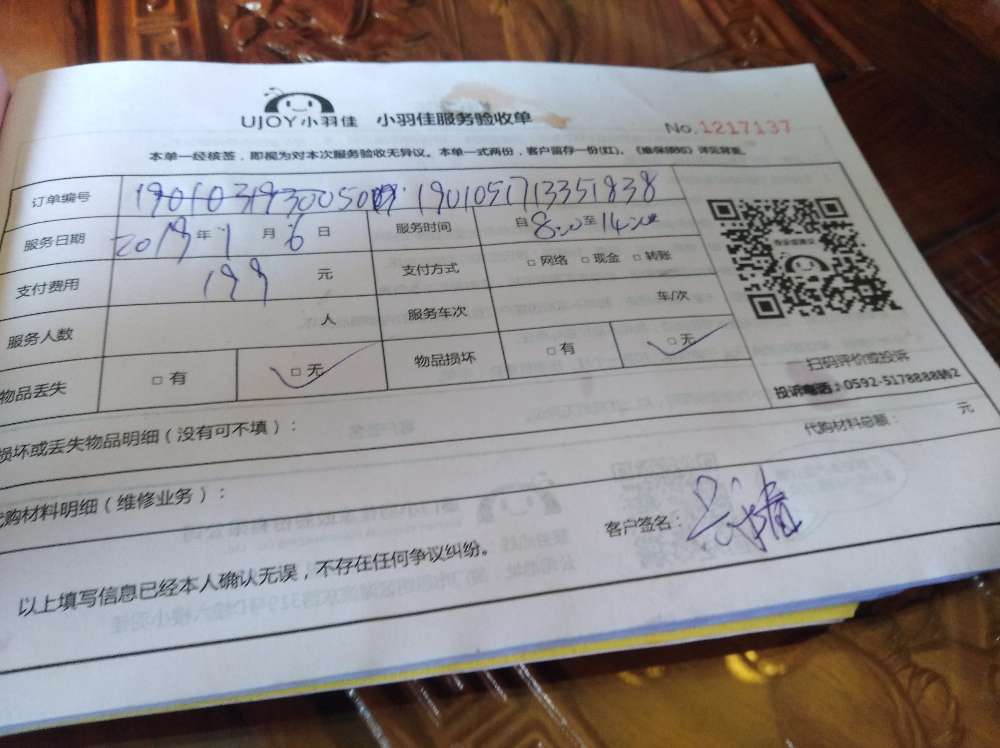 UJOY小羽佳 小羽佳服务验收单 No.1217137
本单一经核签，即视为对本次服务验收无异议。本单一式两份，客户留存一份(红)。《维保须知》详见背里。
订单编号 1901051713351838
服务日期 2019年1月6日 服务时间 自8:00至14:00
支付费用 199元 支付方式 □网络 □现金 □转账
服务人数 人 服务车次 车/次
物品丢失 □有 □无 物品损坏 □有 □无
扫码评价或投诉
投诉电话：0592-5178888转2
损坏或丢失物品明细（没有可不填）：
代购材料明细（维修业务）： 代购材料总额： 元
以上填写信息已经本人确认无误，不存在任何争议纠纷。 客户签名：